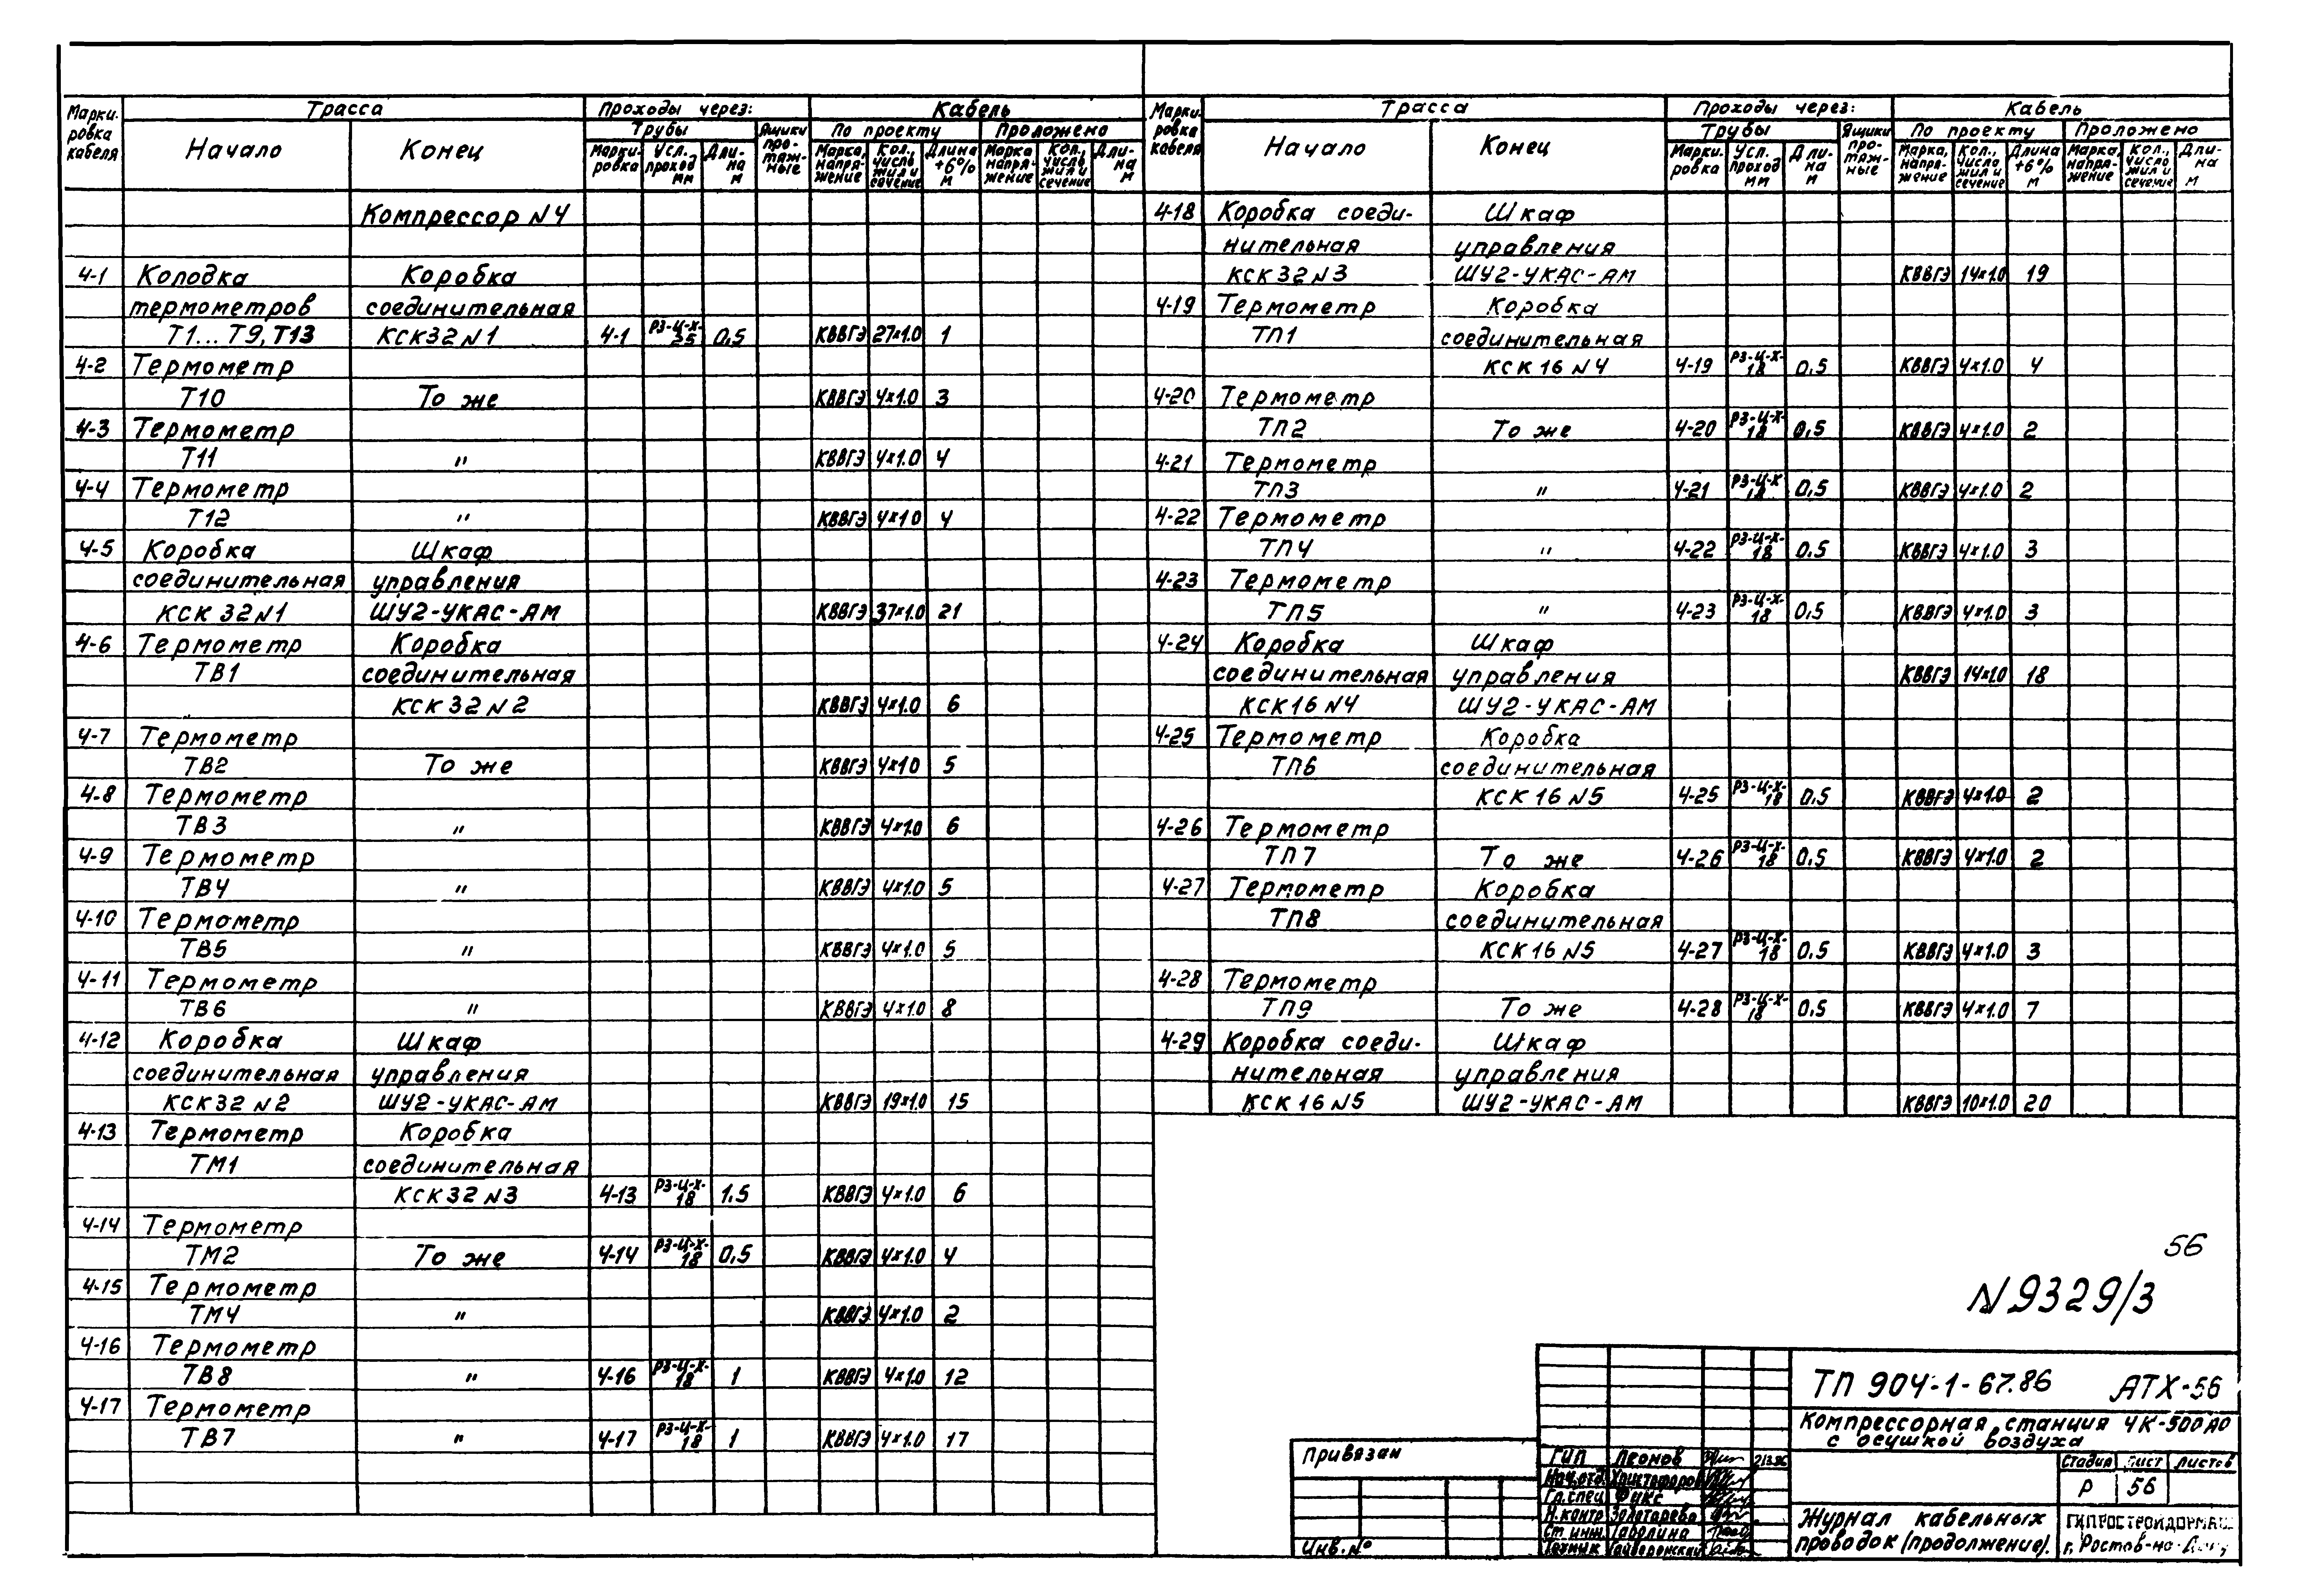 Марки- Трасса Проходы через: Кабель
ровка Трубы Ящики По проекту Проложено
кабеля Начало Конец Марки- Усл. Дли- про- Марка, Кол., Длина Марка Кол., Дли-
ровка проход на тяж- напря- число +6% напря- число на
мм м ные жение жил и м жение жил и м
сечение сечение
Компрессор N4
4-1 Колодка Коробка
термометров соединительная
Т1... Т9, Т13 КСК32 N1 4-1 РЗ-Ц-Х-25 0,5 КВВГЭ 27×1.0 1
4-2 Термометр
Т10 То же КВВГЭ 4×1.0 3
4-3 Термометр
Т11 " КВВГЭ 4×1.0 4
4-4 Термометр
Т12 " КВВГЭ 4×10 4
4-5 Коробка Шкаф
соединительная управления
КСК 32 N1 ШУ2-УКАС-АМ КВВГЭ 37×1.0 21
4-6 Термометр Коробка
ТВ1 соединительная
КСК 32 N2 КВВГЭ 4×1.0 6
4-7 Термометр
ТВ2 То же КВВГЭ 4×10 5
4-8 Термометр
ТВ3 " КВВГЭ 4×1.0 6
4-9 Термометр
ТВ4 " КВВГЭ 4×1.0 5
4-10 Термометр
ТВ5 " КВВГЭ 4×1.0 5
4-11 Термометр
ТВ6 " КВВГЭ 4×1.0 8
4-12 Коробка Шкаф
соединительная управления
КСК32 N2 ШУ2-УКАС-АМ КВВГЭ 19×1.0 15
4-13 Термометр Коробка
ТМ1 соединительная
КСК32 N3 4-13 РЗ-Ц-Х-18 1.5 КВВГЭ 4×1.0 6
4-14 Термометр
ТМ2 То же 4-14 РЗ-Ц-Х-18 0,5 КВВГЭ 4×1.0 4
4-15 Термометр
ТМ4 " КВВГЭ 4×1.0 2
4-16 Термометр
ТВ8 " 4-16 РЗ-Ц-Х-18 1 КВВГЭ 4×1.0 12
4-17 Термометр
ТВ7 " 4-17 РЗ-Ц-Х-18 1 КВВГЭ 4×1.0 17
Марки- Трасса Проходы через: Кабель
ровка Трубы Ящики По проекту Проложено
кабеля Начало Конец Марки- Усл. Дли- про- Марка, Кол., Длина Марка, Кол., Дли-
ровка проход на тяж- напря- число +6% напря- число на
мм м ные жение жил и м жение жил и м
сечение сечение
4-18 Коробка соеди- Шкаф
нительная управления
КСК32 N3 ШУ2-УКАС-АМ КВВГЭ 14×1.0 19
4-19 Термометр Коробка
ТП1 соединительная
КСК 16 N4 4-19 РЗ-Ц-Х-18 0,5 КВВГЭ 4×1.0 4
4-20 Термометр
ТП2 То же 4-20 РЗ-Ц-Х-18 0,5 КВВГЭ 4×1.0 2
4-21 Термометр
ТП3 " 4-21 РЗ-Ц-Х 18 0,5 КВВГЭ 4×1.0 2
4-22 Термометр
ТП4 " 4-22 РЗ-Ц-Х-18 0,5 КВВГЭ 4×1.0 3
4-23 Термометр
ТП5 " 4-23 РЗ-Ц-Х-18 0,5 КВВГЭ 4×1.0 3
4-24 Коробка Шкаф
соединительная управления КВВГЭ 14×1.0 18
КСК16 N4 ШУ2-УКАС-АМ
4-25 Термометр Коробка
ТП6 соединительная
КСК 16 N5 4-25 РЗ-Ц-Х-18 0,5 КВВГЭ 4×1.0 2
4-26 Термометр
ТП7 То же 4-26 РЗ-Ц-Х-18 0,5 КВВГЭ 4×1.0 2
4-27 Термометр Коробка
ТП8 соединительная
КСК 16 N5 4-27 РЗ-Ц-Х-18 0,5 КВВГЭ 4×1.0 3
4-28 Термометр
ТП9 То же 4-28 РЗ-Ц-Х-18 0,5 КВВГЭ 4×1.0 7
4-29 Коробка соеди- Шкаф
нительная управления
КСК 16 N5 ШУ2-УКАС-АМ КВВГЭ 10×1.0 20
56
N9329/3
ТП 904-1-67.86 АТХ-56
Компрессорная станция 4К-500АО
с осушкой воздуха
Привязан
Инв. №
ГИП Леонов
Нач.отд. Христофоров
Гл.спец Фикс
Н.контр Золотарева
Ст. инж. Гаволина
Техник Гайворонский
Стадия Лист Листов
Р 56
Журнал кабельных
проводок (продолжение).
ГИПРОСТРОЙДОРМАШ
г. Ростов-на-Дону